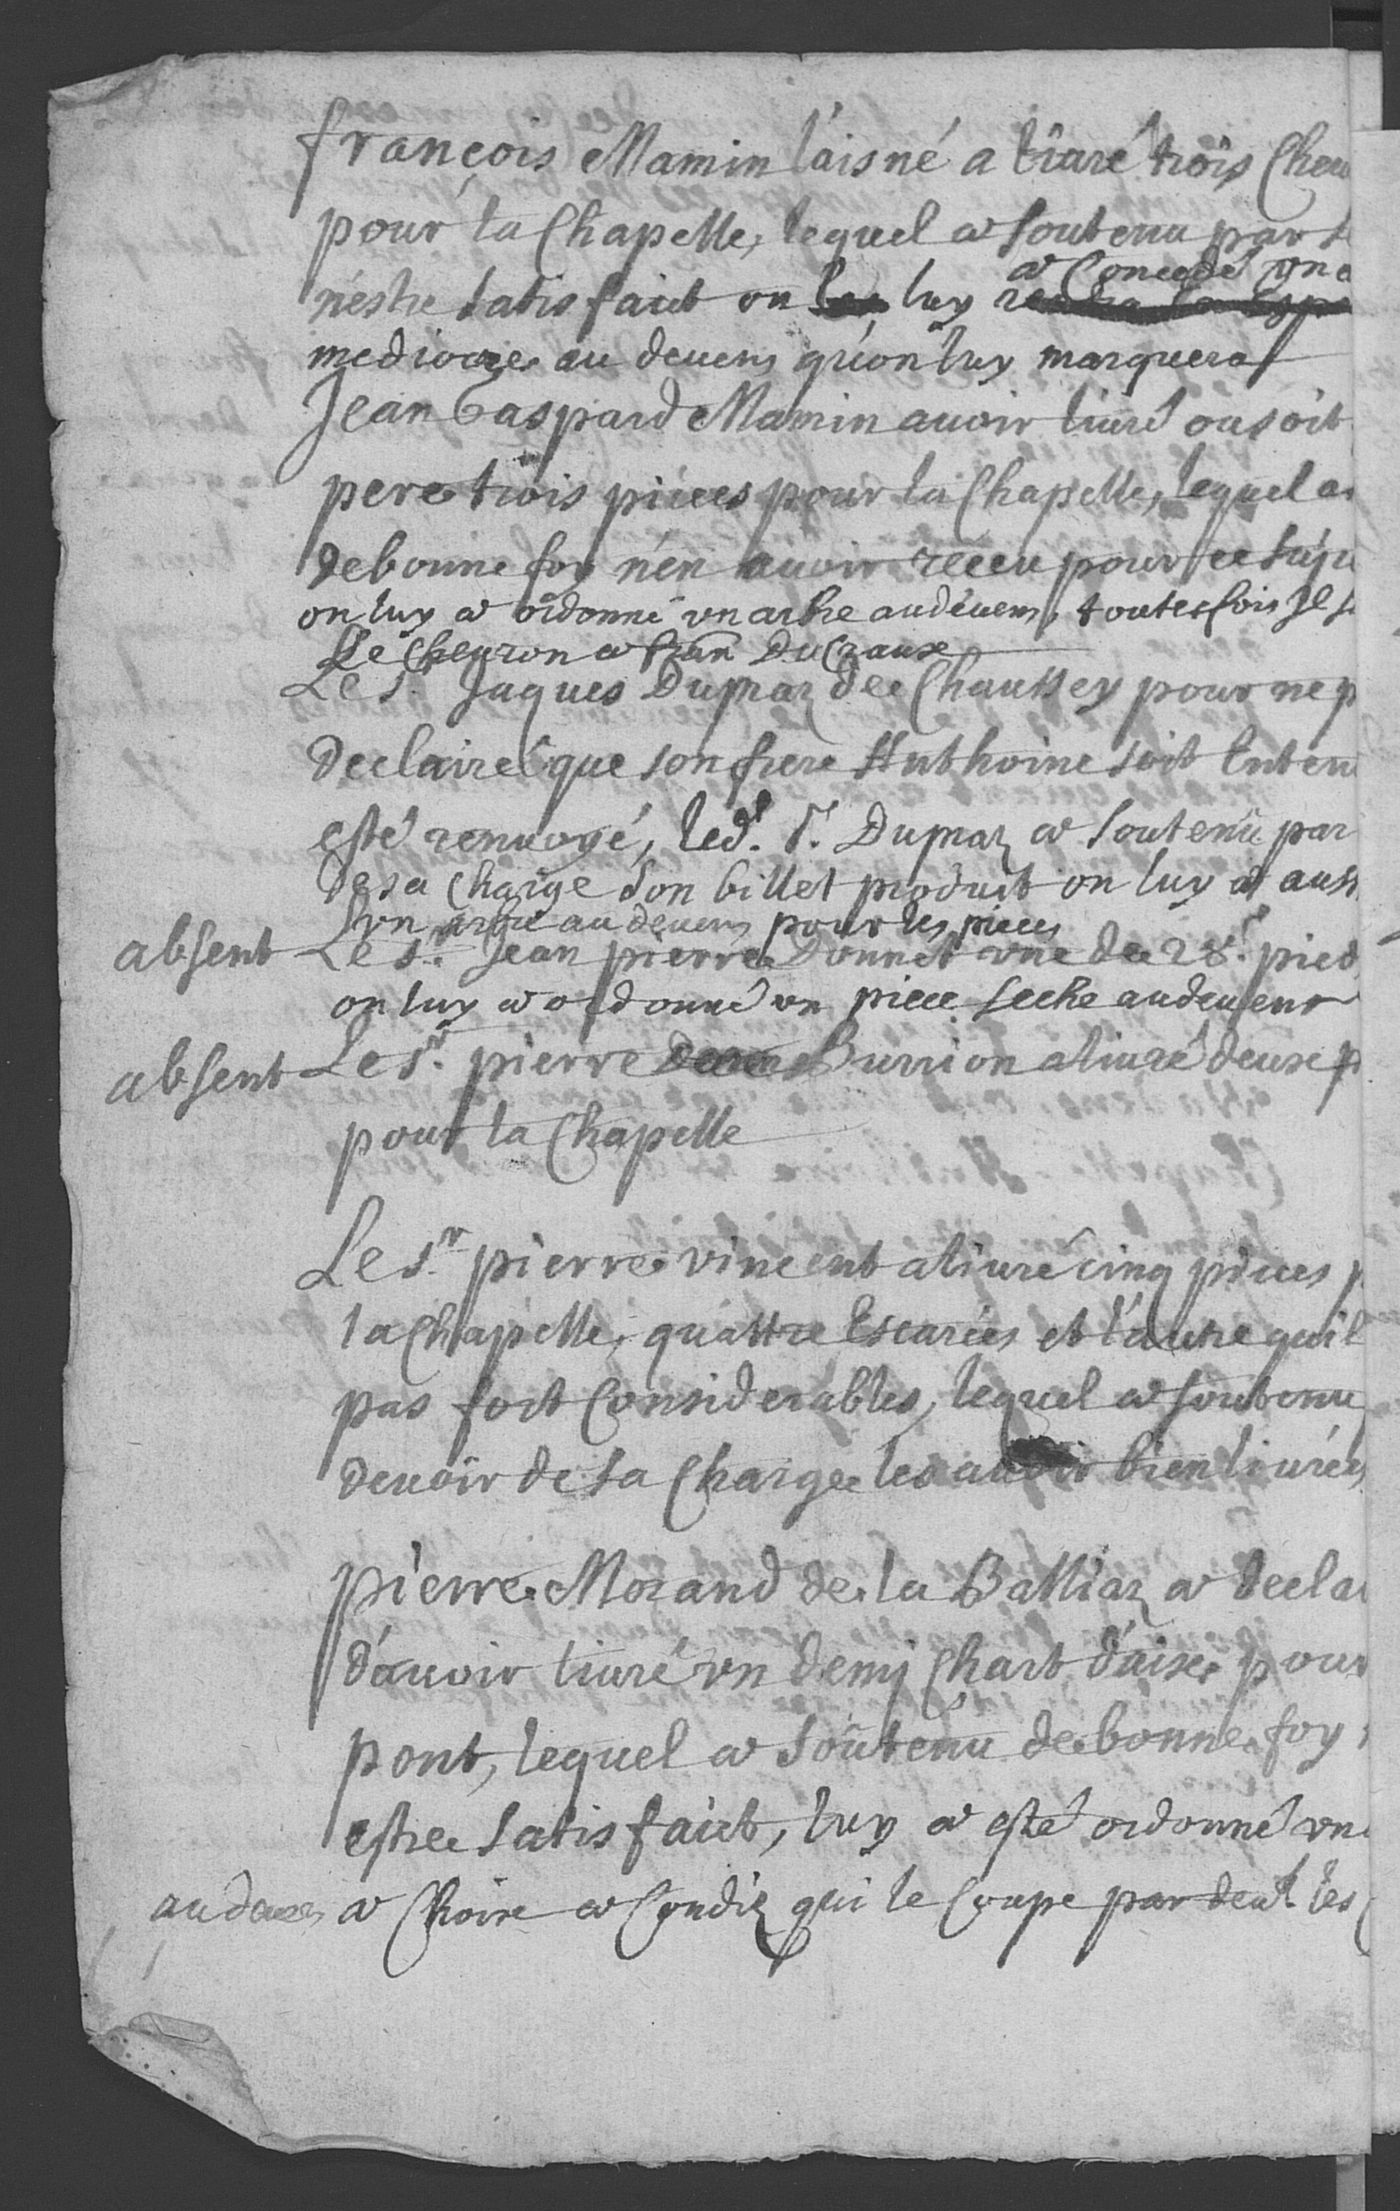 françois Mamin l'aisné a liuré trois Cheu
pour la Chapelle, lequel a soutenu par s
n'estre satisfaict on luy a Concedé vne
mediocre au deuens qu'on luy marquera
Jean Gaspard Mamin auoir liuré ou soit
pere trois pieces pour la Chapelle, lequel a
de bonne foy n'en auoir receu pour ce suje
on luy a ordonné vn arbre au deuens, toutesfois Il
Le Cheuron a Du Craux
Le Sr. Jaques Dumaz de Chaussey pour ne p
declairé que son frere Anthoine soit Enten
esté renuoyé, led.t Sr. Dumaz a soutenu par
de sa charge son billet produit on luy a auss
vn arbre au deuens pour les pieces
absent Le Sr. Jean pierre Donnet vne de 28. pied
on luy a ordonné vn piece seche au deuens
absent Le Sr. pierre Burrion a liuré deux p
pour la Chapelle
Le Sr. pierre vincent a liuré cinq pieces p
la Chapelle, quattre Escarées et l'autre quil
pas fort Considerables, lequel a soutenu
deuoir de sa Charge les auoir bien liurées
pierre Morand de la Battiaz a decla
d'auoir liuré vn demj Chart d'aise pour
pont, lequel a soutenu de bonne foy
estre satisfaict, luy a esté ordonné vn
au deuens a Choire a Condiz qui le Coupe par deu.t les